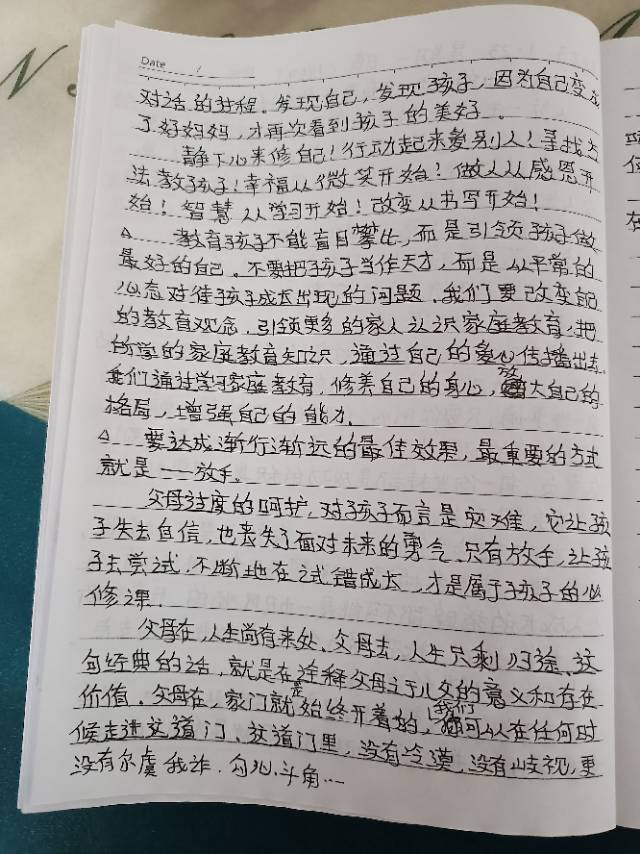 Date
对话的过程。发现自己，发现孩子，因为自己变成
了好妈妈，才再次看到孩子的美好。
静下心来修自己！行动起来爱别人！寻找方
法教孩子！幸福从微笑开始！做人从感恩开
始！智慧从学习开始！改变从书写开始！
△ 教育孩子不能盲目攀比，而是引领孩子做
最好的自己。不要把孩子当作天才，而是从平常的
心态对待孩子成长出现的问题。我们要改变自己
的教育观念，引领更多的家人认识家庭教育，把
所学的家庭教育知识，通过自己的爱心传播出去。
我们通过学习家庭教育，修养自己的身心，放大自己的
格局，增强自己的能力。
△ 要达成渐行渐远的最佳效果，最重要的方式
就是——放手。
父母过度的呵护，对孩子而言是灾难，它让孩
子失去自信，也丧失了面对未来的勇气。只有放手，让孩
子去尝试，不断地在试错成长，才是属于孩子的必
修课。
父母在，人生尚有来处。父母去，人生只剩归途。这
句经典的话，就是在注释父母之于儿女的意义和存在
价值。父母在，家门就是始终开着的，我们可以在任何时
候走进这道门。这道门里，没有冷漠，没有歧视，更
没有尔虞我诈，勾心斗角…